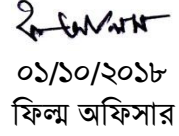 ০১/১০/২০১৮
ফিল্ম অফিসার